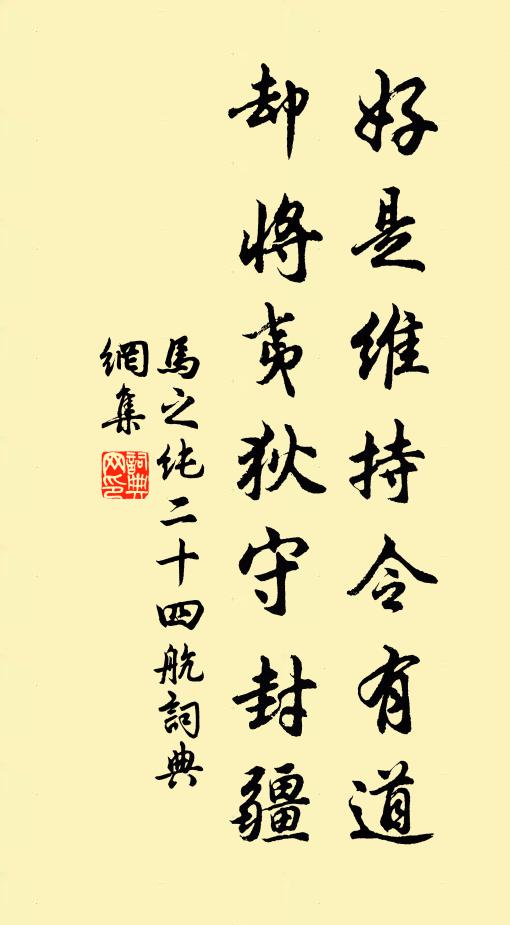 好是維持令有道
却將夷狄守封疆
馬之純二十四航詞典
網集
詞典
网印